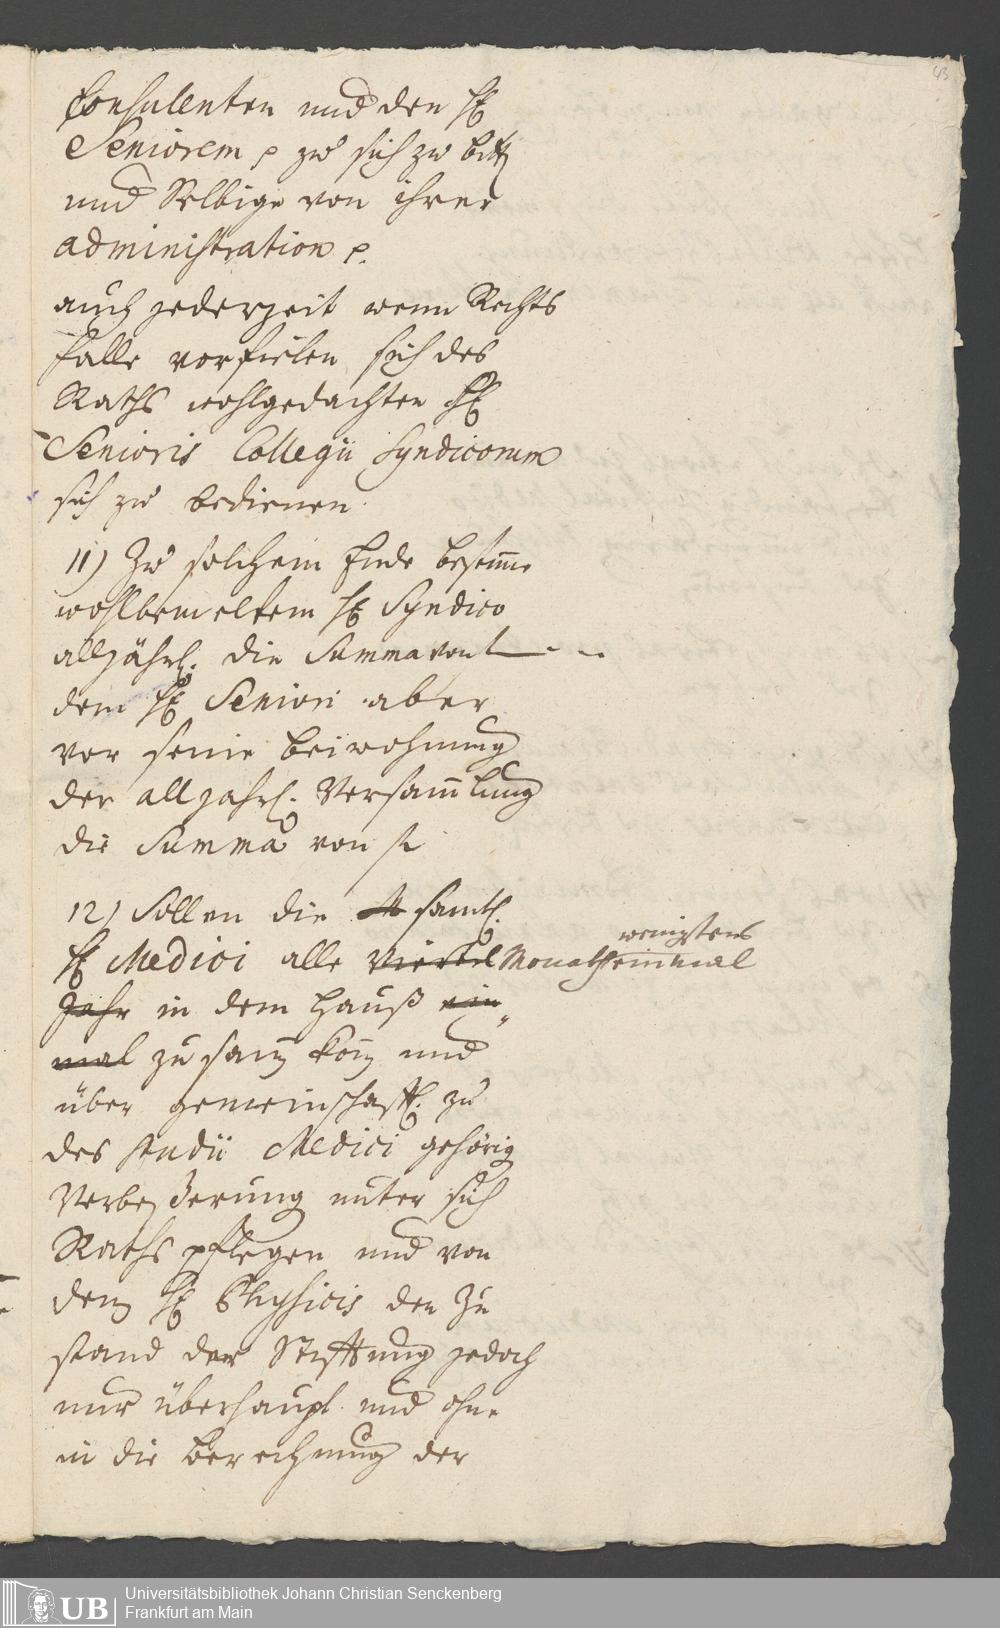 43
Consulenten und den H
Seniorem p zu sich zu bitt
und Selbige von ihrer
administration p.
auch jederzeit wenn Rechts
fälle vorfielen sich des
Raths wohlgedachten H
Senioris Collegii Syndicorum
sich zu bedienen.
11) Zu solchem Ende bestimme
wohlbemeltem H Syndico
alljährl. die Summa von
dem H Seniori aber
vor seine beiwohnung
der alljahrl. Versammlung
die Summa von
12) Sollen die samtl.
wenigstens
H Medici alle Viertel Monath einmal
Jahr in dem Hauß ein
mal zu sam kom und
über gemeinschafftl. zu
des studii Medici gehörig
Verbeßerung unter sich
Raths pflegen und von
dem H Physicis den Zu
stand der Stifftung jedoch
nur überhaupt und ohne
in die berechnung der
Universitätsbibliothek Johann Christian Senckenberg
Frankfurt am Main
UB